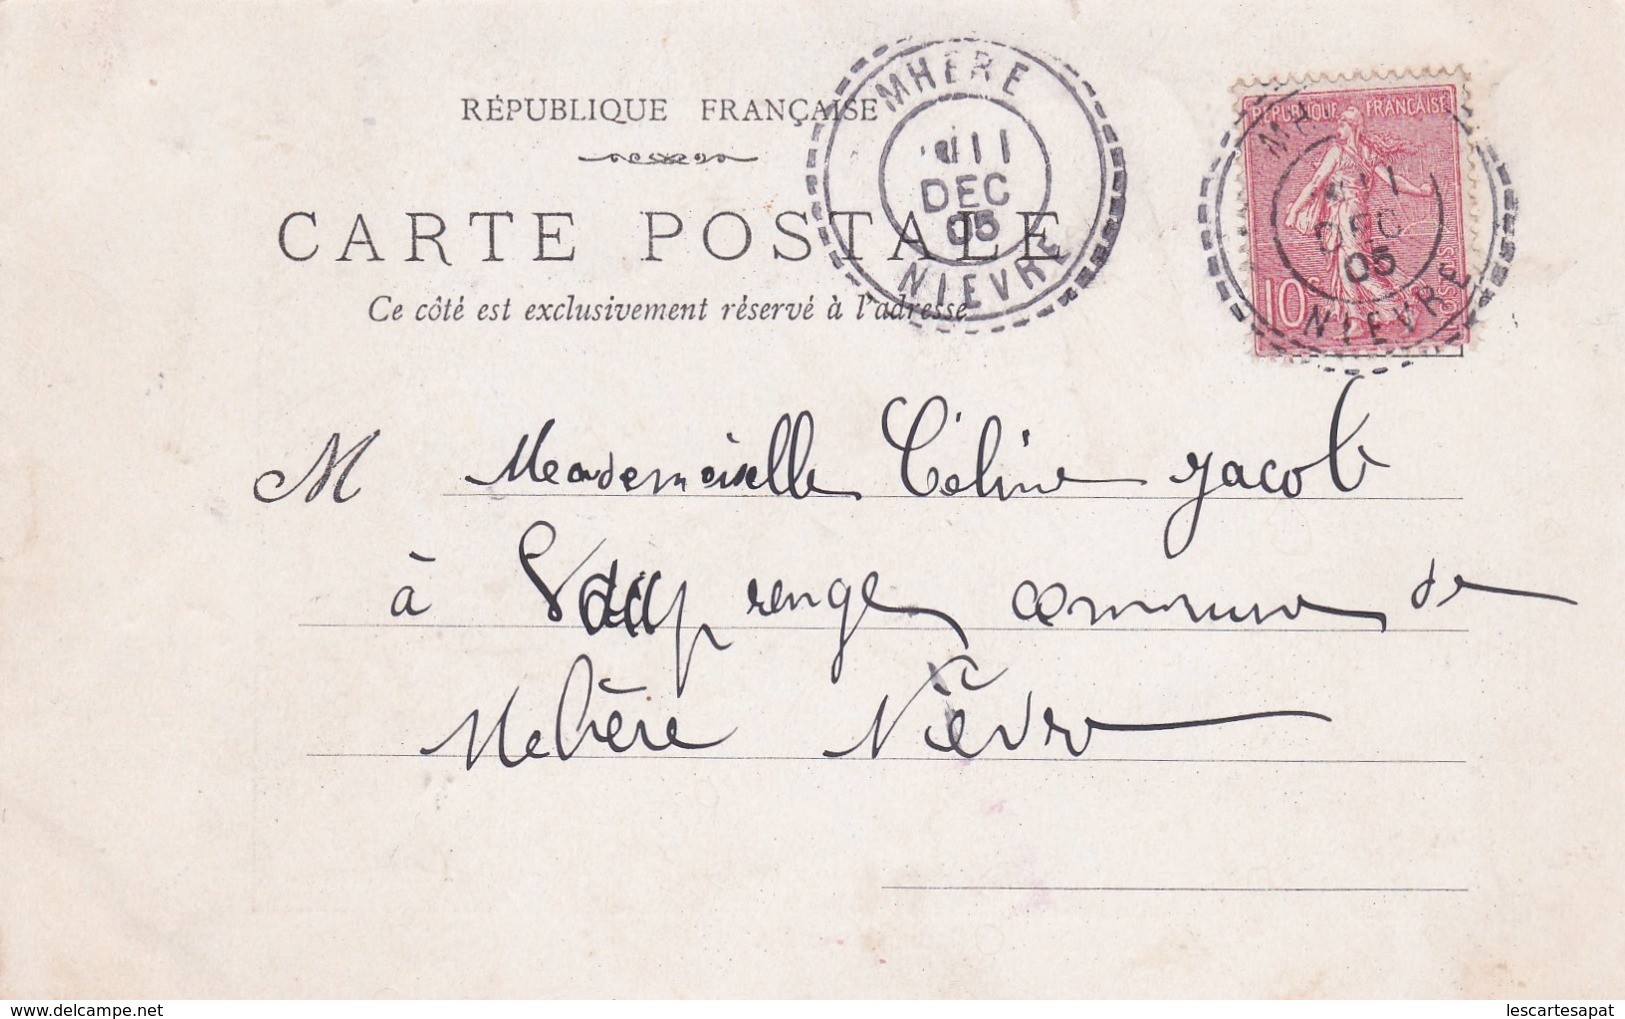 RÉPUBLIQUE FRANÇAISE
CARTE POSTALE
Ce côté est exclusivement réservé à l'adresse
MHERE
11
DEC
05
NIEVRE
REPUBLIQUE FRANÇAISE
10
POSTES
DEC
05
NIEVRE
M Mademoiselle Céline Jacob
à Vauprenge commune de
Mehère Nièvre
www.delcampe.net
lescartesapat